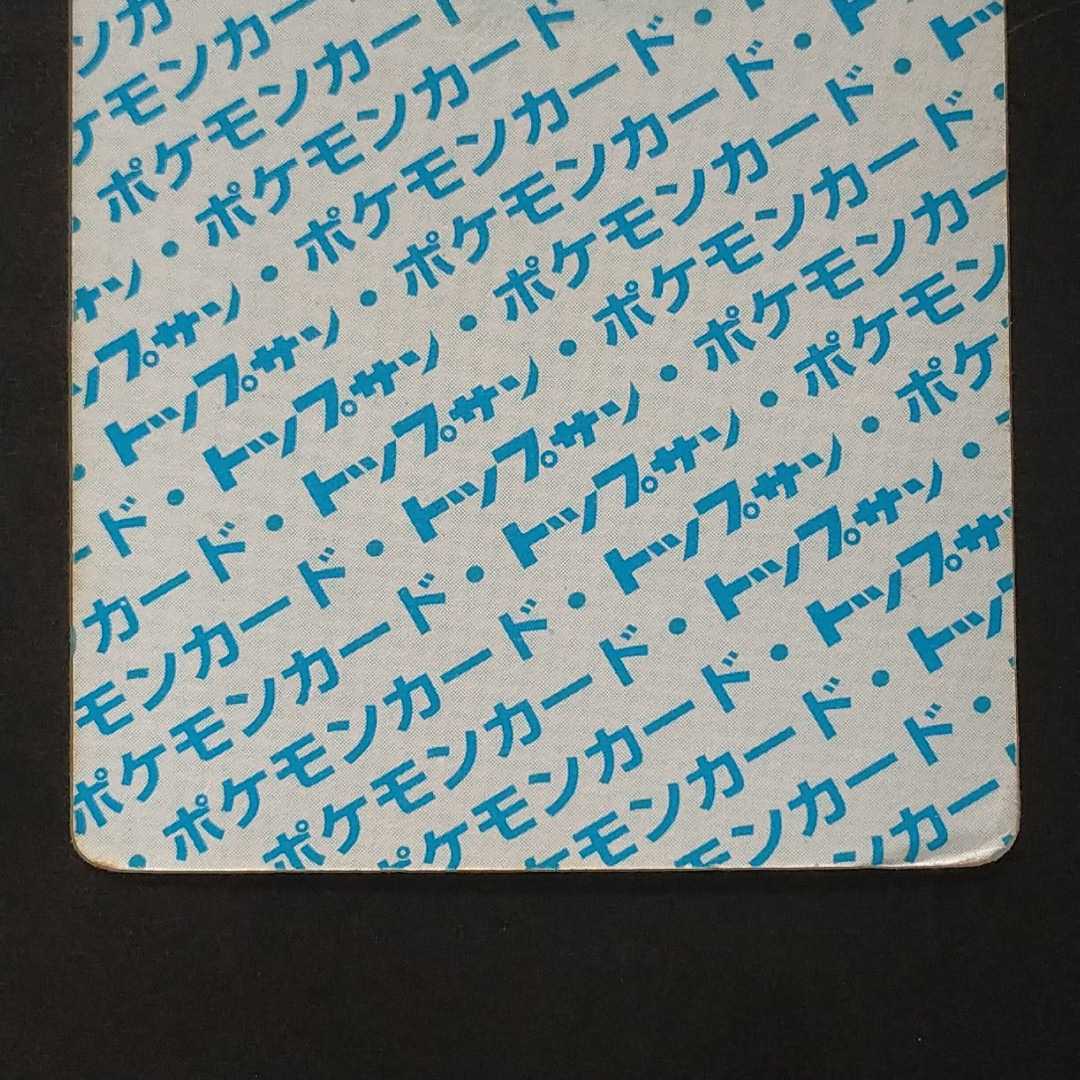 ンカ
ケモンカー
・ポケモンカード
サン・ポケモンカード
ップサン・ポケモンカード・
・トップサン・ポケモンカード・ト
ード・トップサン・ポケモンカード・トッ
カード・トップサン・ポケモンカード・
モンカード・トップサン・ポケモンカー
ポケモンカード・トップサン・ポケモン
・ポケモンカード・トップサン・ポケ
ポケモンカード・トップサン・
ポケモンカード・トップサ
ケモンカード・トッ
モンカード・
ンカー